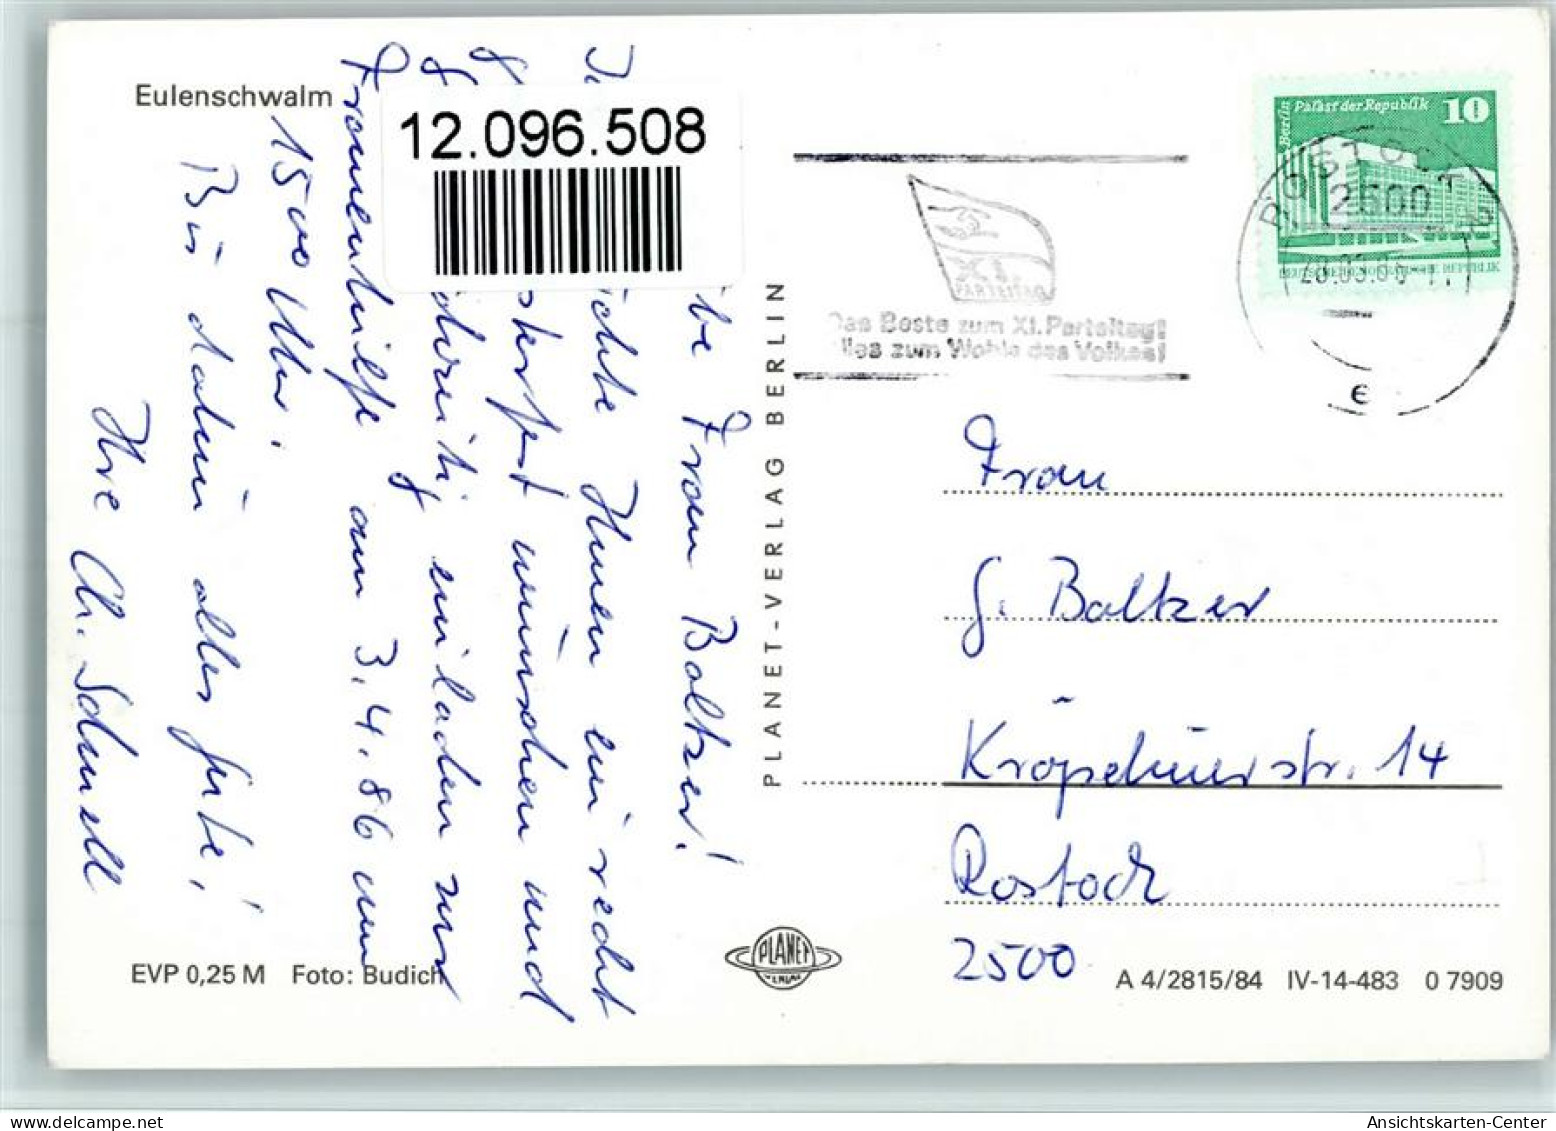 Eulenschwalm
12.096.508
Berlin Palast der Republik 10
DEUTSCHE DEMOKRATISCHE REPUBLIK
ROSTOCK 2
2500
28.03.86
e
XI.
PARTEITAG
Das Beste zum XI. Parteitag!
Alles zum Wohle des Volkes!
be Frau Baltzer!
chte Ihnen ein recht
sterfest wünschen und
einladen zur
Frauenhilfe am 3.4.86 um
1500 Uhr.
Bis dahin alles Gute!
Ihre Ch. Schnell
PLANET-VERLAG BERLIN
Frau
G. Baltzer
Kröpelinerstr. 14
Rostock
2500
EVP 0,25 M Foto: Budich
PLANET
VERLAG
A 4/2815/84 IV-14-483 0 7909
Ansichtskarten-Center